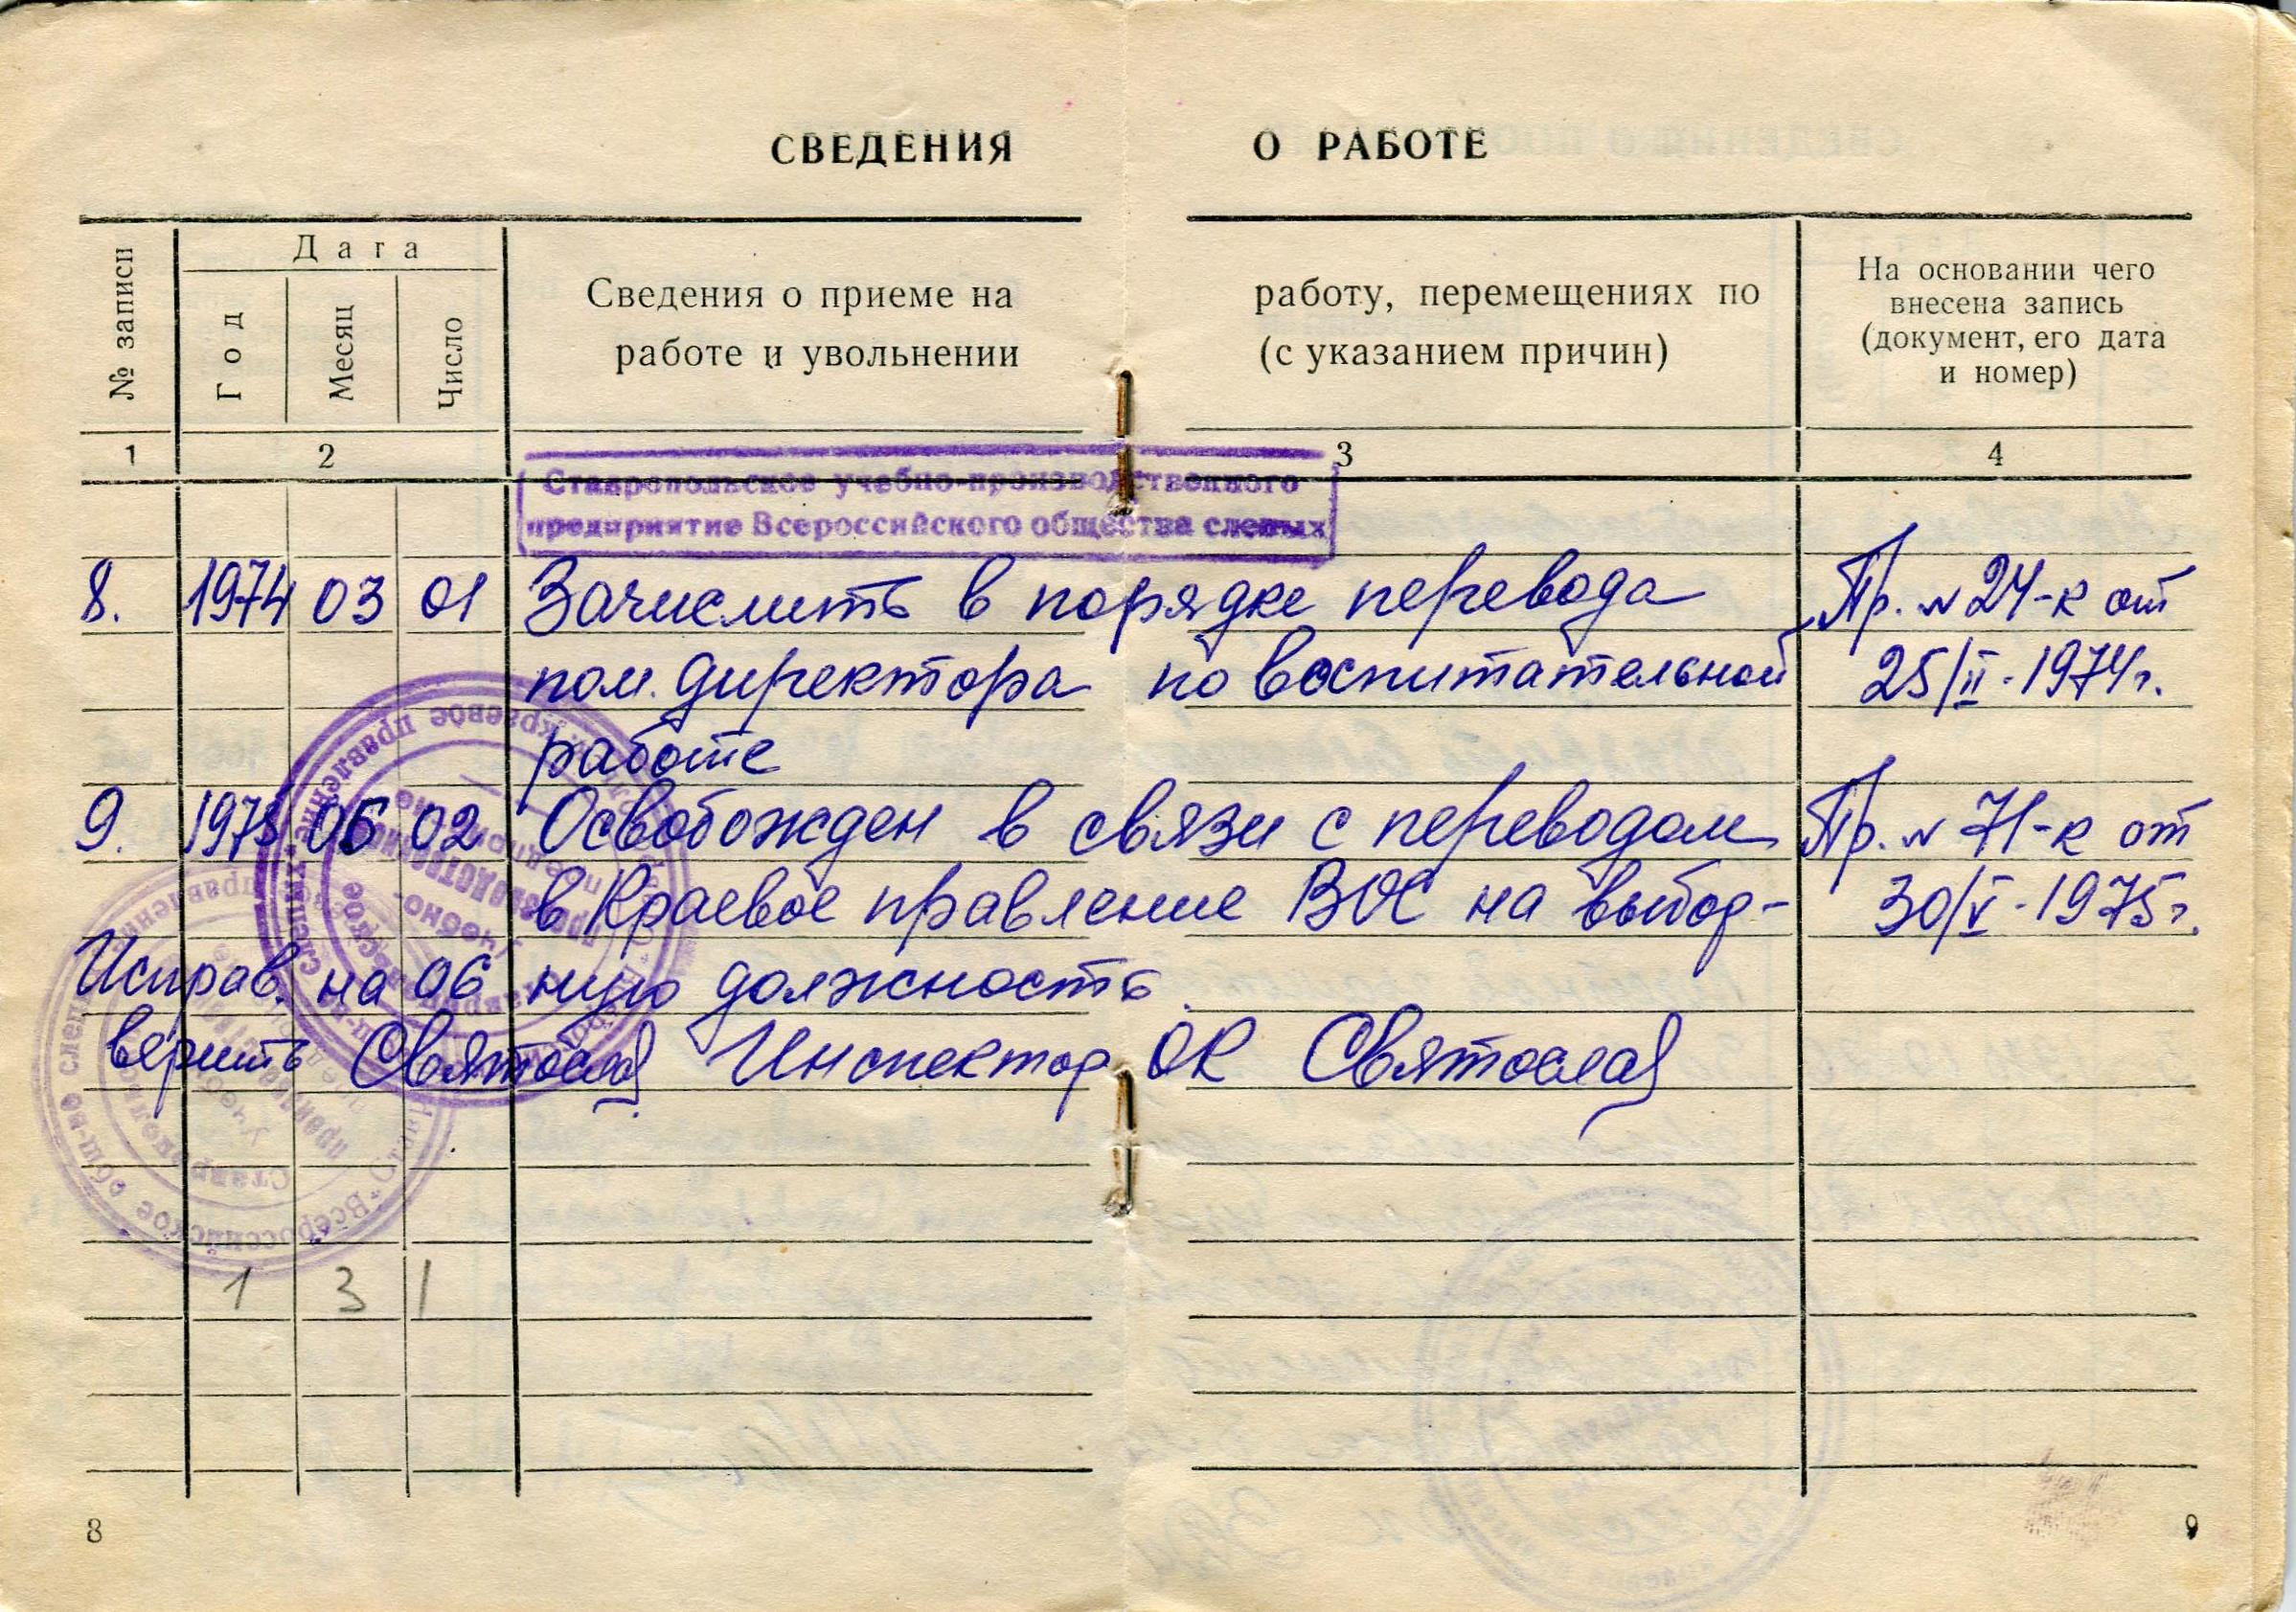 СВЕДЕНИЯ О РАБОТЕ
№ записи
Дата
Год
Месяц
Число
Сведения о приеме на работу, перемещениях по
работе и увольнении (с указанием причин)
На основании чего
внесена запись
(документ, его дата
и номер)
1 2 3 4
Ставропольское учебно-производственного
предприятие Всероссийского общества слепых
8. 1974 03 01 Зачислить в порядке перевода Пр. № 24-к от
пом. директора по воспитательной 25/II-1974г.
работе
9. 1975 06 02 Освобожден в связи с переводом Пр. № 71-к от
в Краевое правление ВОС на выбор- 30/V-1975г.
Исправ. на 06 ную должность.
верить Святослав Инспектор ОК Святослав
Всероссийское общ-во слепых
краевое правление
Учебно-
производственное
предприятие
1 3 1
8 9